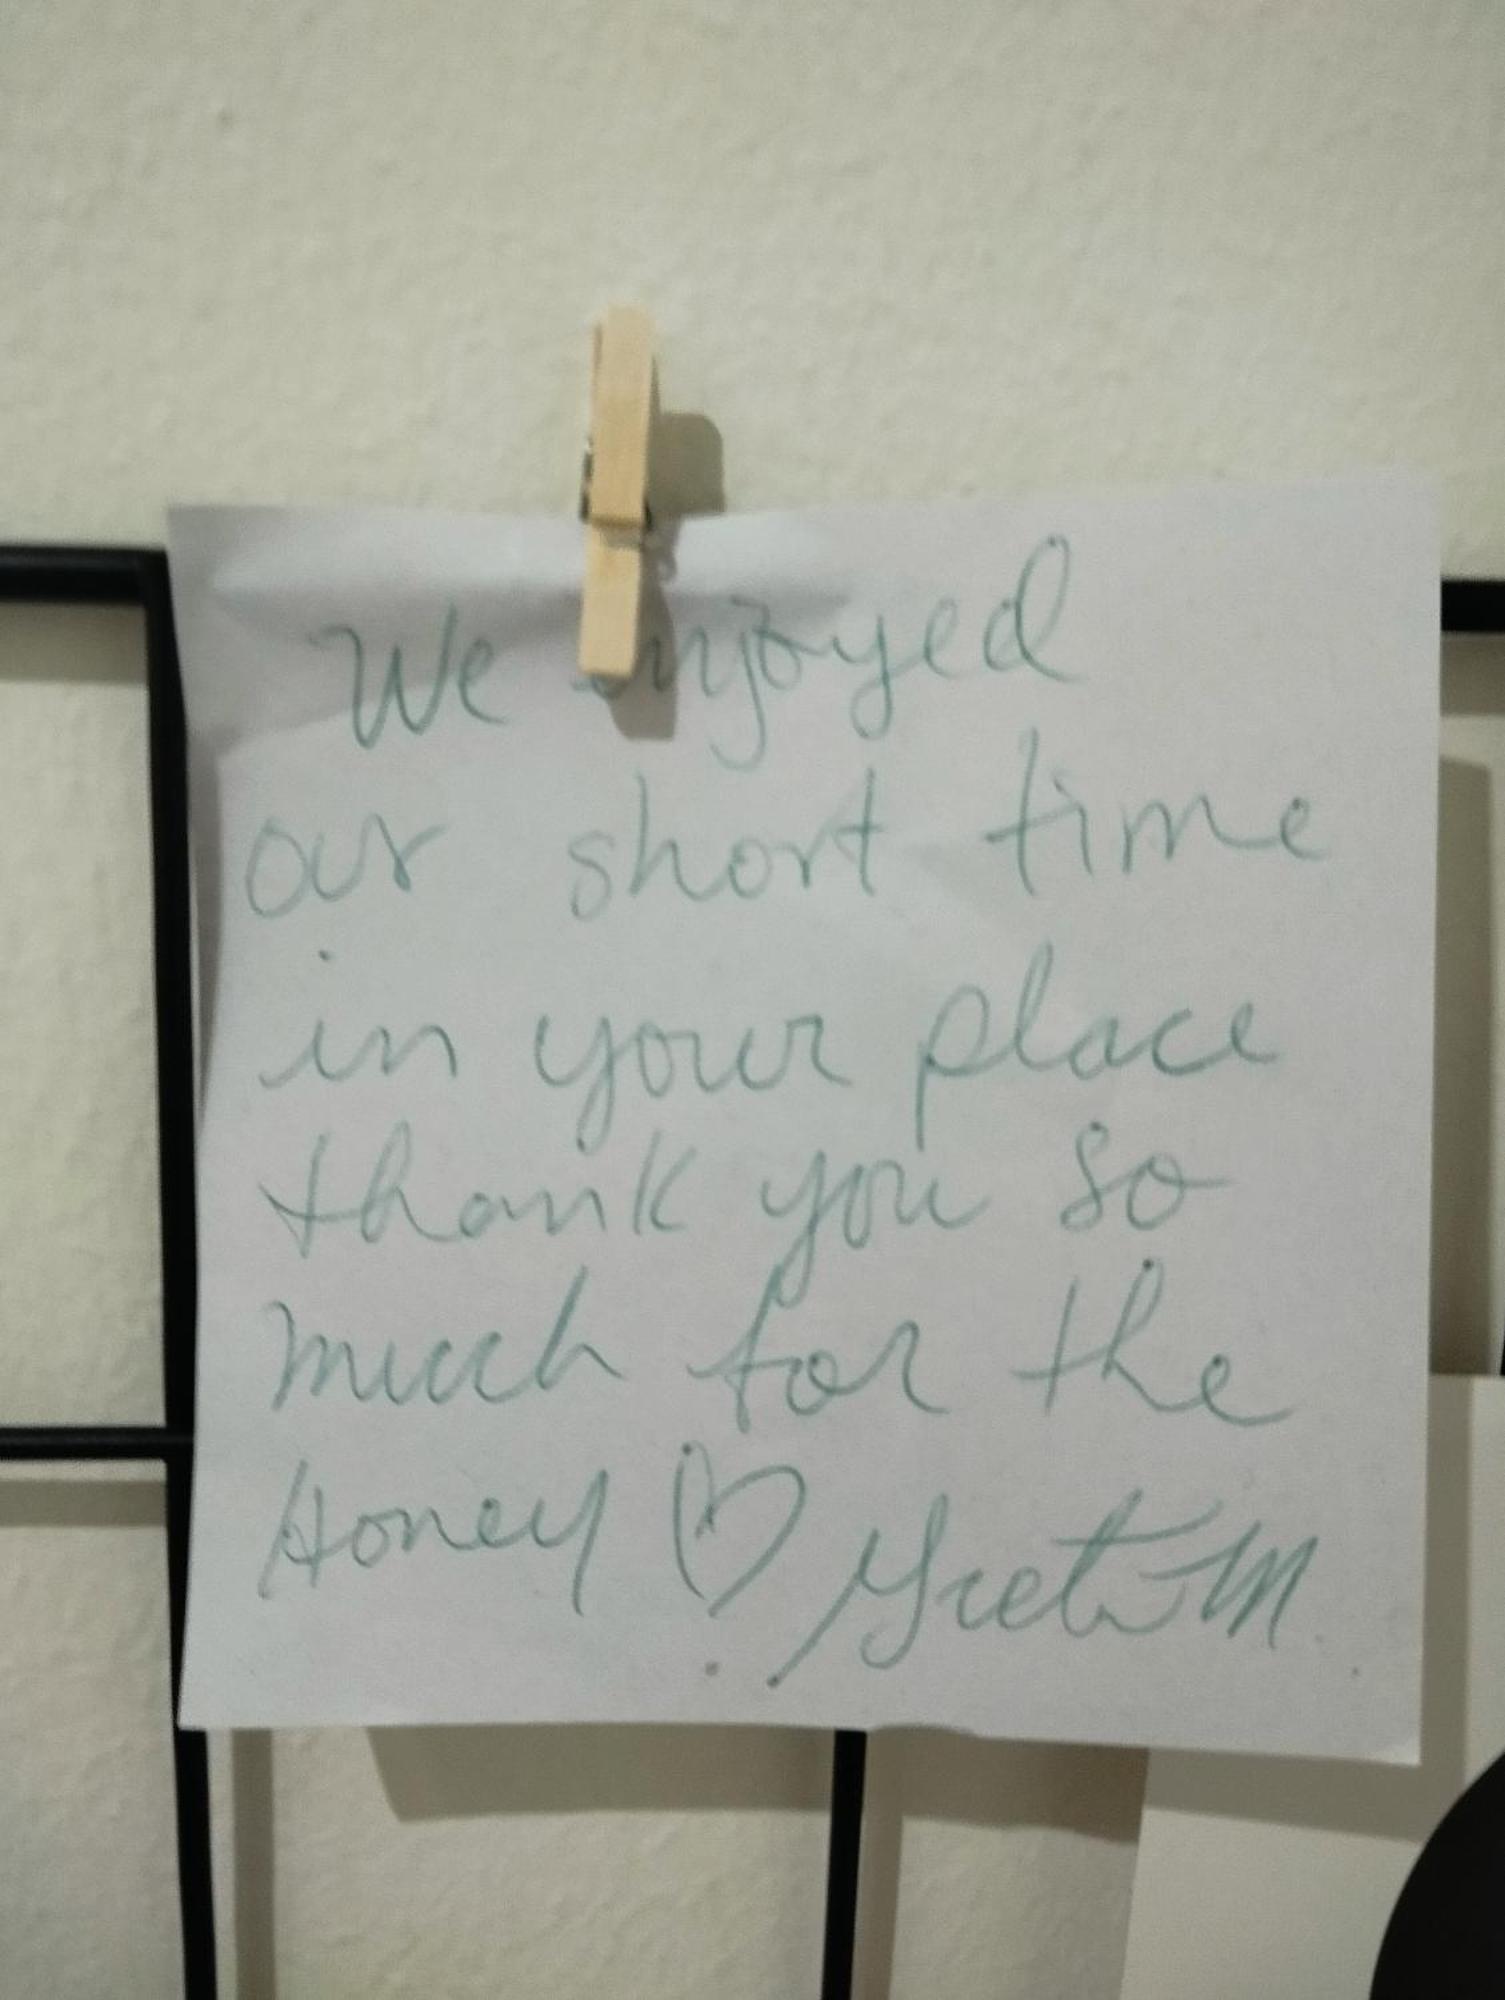 We enjoyed
our short time
in your place
thank you so
much for the
Honey ♡ Greta M.